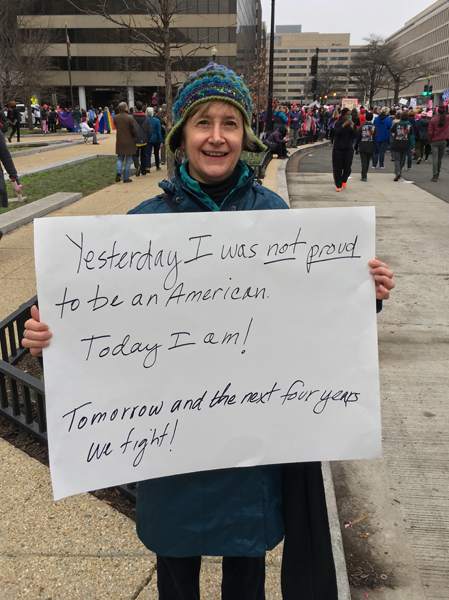 Yesterday I was not proud
to be an American.
Today I am!
Tomorrow and the next four years
we fight!